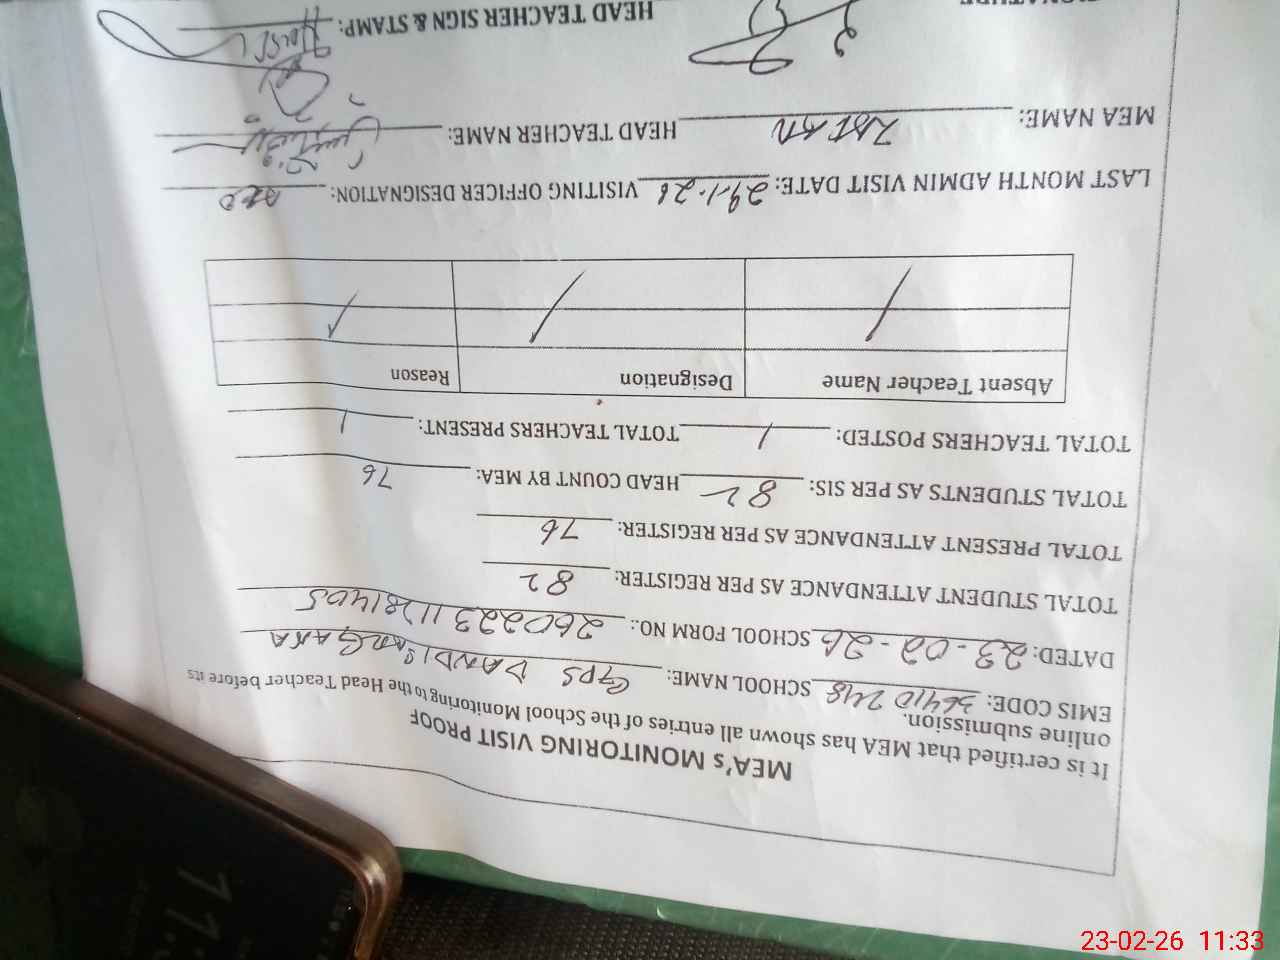 MEA's MONITORING VISIT PROOF
It is certified that MEA has shown all entries of the School Monitoring to the Head Teacher before its
online submission.
EMIS CODE: 36410248 SCHOOL NAME: GPS
DATED: 23-02-26 SCHOOL FORM NO.: 260223111281405
TOTAL STUDENT ATTENDANCE AS PER REGISTER: 82
TOTAL PRESENT ATTENDANCE AS PER REGISTER: 76
TOTAL STUDENTS AS PER SIS: 82 HEAD COUNT BY MEA: 76
TOTAL TEACHERS POSTED: 1 TOTAL TEACHERS PRESENT: 1
Absent Teacher Name Designation Reason
LAST MONTH ADMIN VISIT DATE: 29-1-26 VISITING OFFICER DESIGNATION: AEO
MEA NAME: HEAD TEACHER NAME:
HEAD TEACHER SIGN & STAMP:
11:
23-02-26 11:33